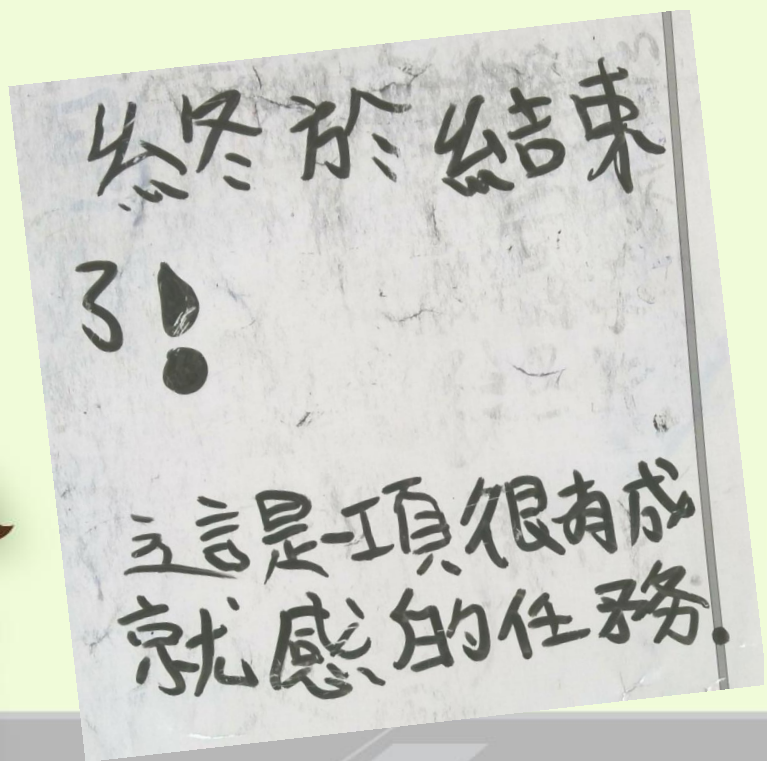 終於結束
了!
這是一項很有成
就感的任務.